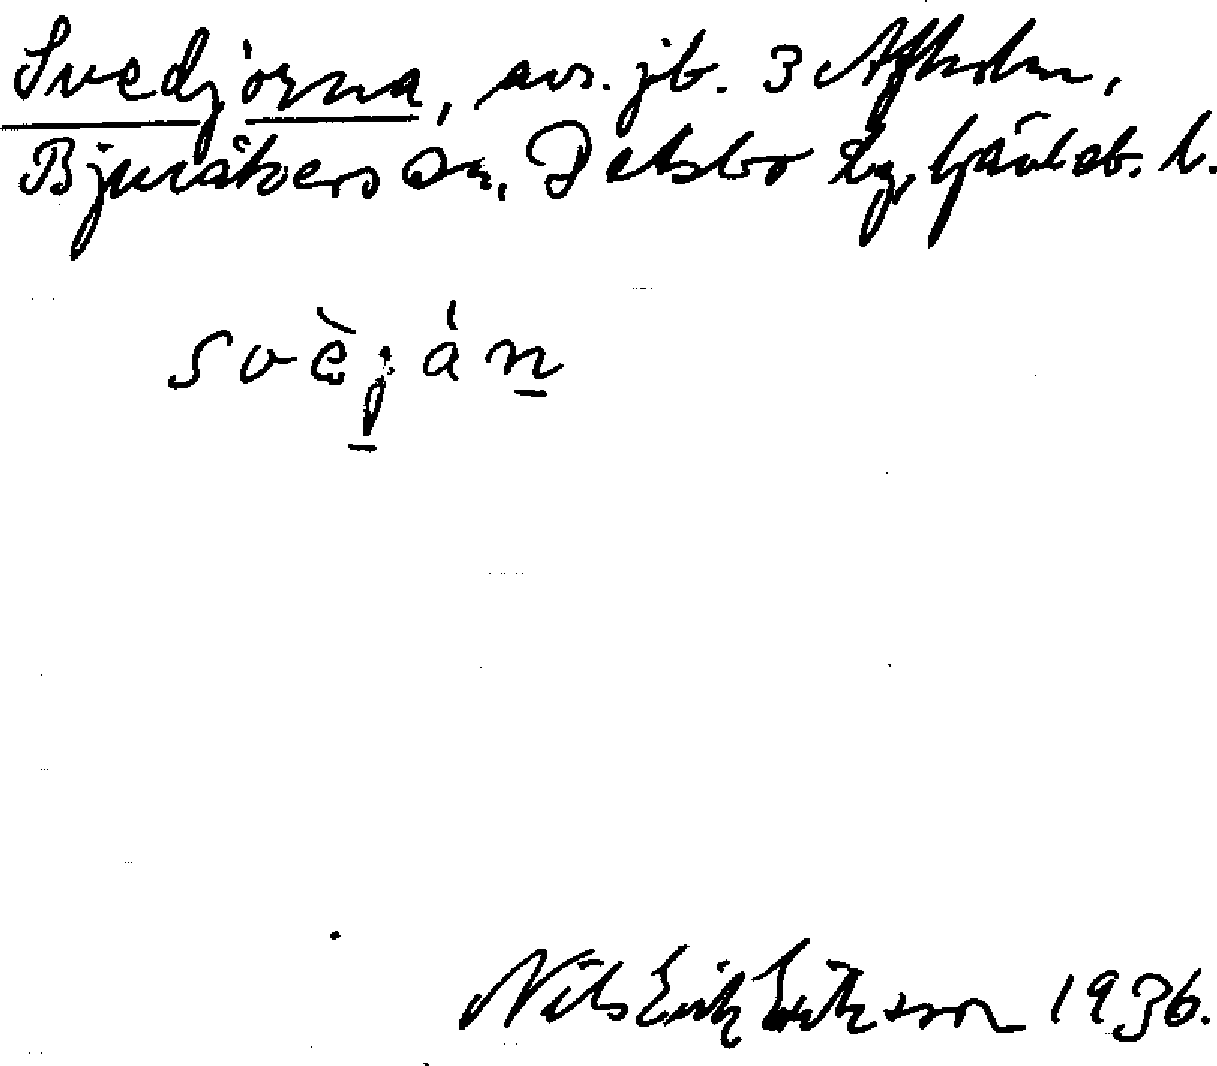 Svedjorna, avs. jb. 3 Afholm,
Bjuråkers sn, Delsbo tg, Gävleb. l.
svèján
Nils Erik Eriksson 1936.